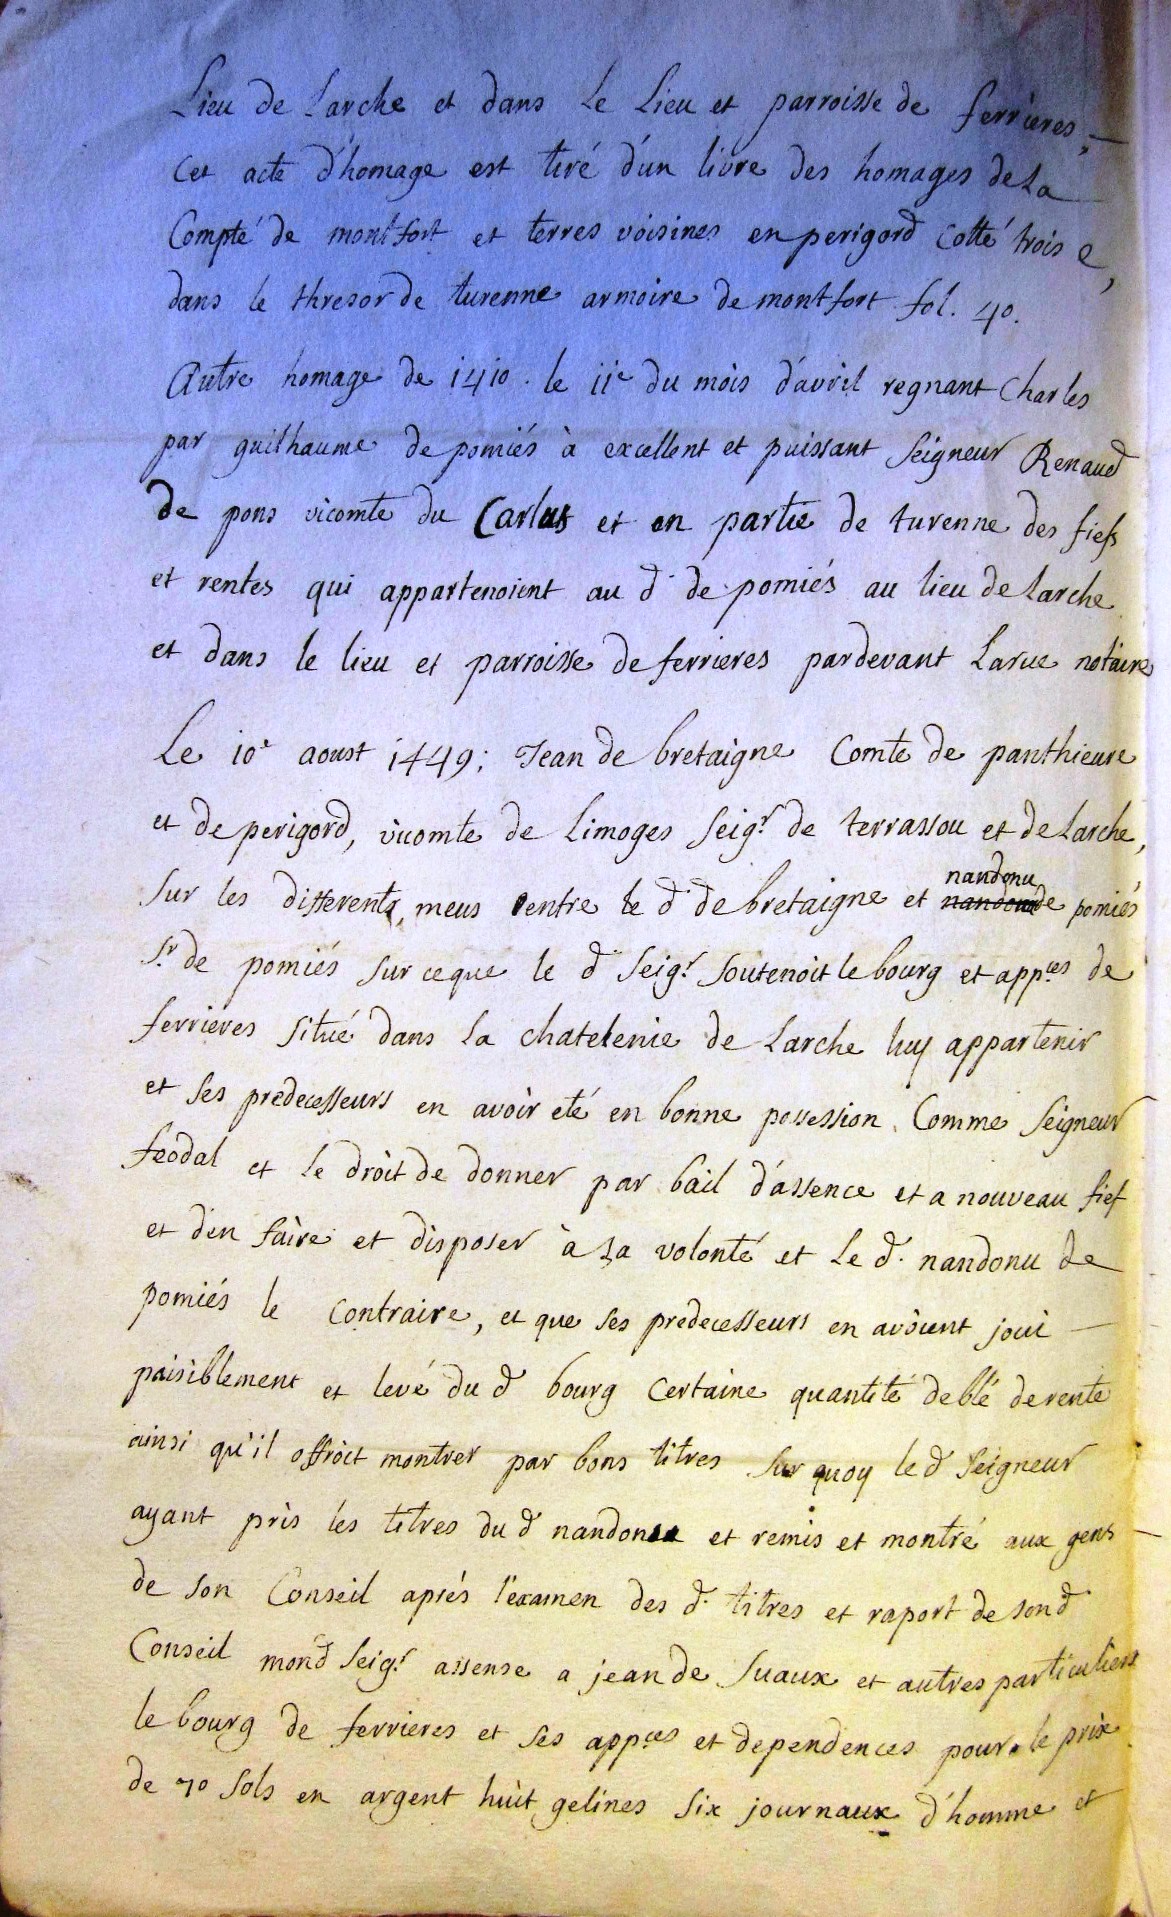 Lieu de Larche et dans Le Lieu et parroisse de ferrieres,
Cet acte d'homage est tiré d'un livre des homages de La
Compté de montfort et terres voisines en perigord Cotté trois e,
dans le thresor de turenne armoire de montfort fol. 40.
Autre homage de 1410. le 11e du mois d'avril regnant Charles
par guilhaume de pomiés à excellent et puissant Seigneur Renaud
de pons vicomte du Carlat et en partie de turenne des fiefs
et rentes qui appartenoient au d. de pomiés au lieu de Larche
et dans le lieu et parroisse de ferrieres pardevant Larue notaire
Le 10e aoust 1449; Jean de bretaigne Comte de panthieure
et de perigord, vicomte de Limoges Seigr. de terrassou et de Larche,
Sur les differents, meus entre le d. de bretaigne et nandonu de pomiés
Sr. de pomiés sur ceque le d. Seigr. Soutenoit le bourg et appces de
ferrieres Situé dans La chatelenie de Larche luy appartenir
et Ses predecesseurs en avoir eté en bonne possession Comme Seigneur
feodal et le droit de donner par bail d'assence et a nouveau fief
et d'en faire et disposer à Sa volonté et Le d. nandonu de
pomiés le Contraire, et que Ses predecesseurs en avoient joui
paisiblement et levé du d. bourg Certaine quantité de blé de rente
ainsi qu'il offroit montrer par bons titres Sur quoy le d. Seigneur
ayant pris les titres du d. nandonu et remis et montré aux gens
de Son Conseil aprés l'examen des d. titres et raport de Son d.
Conseil mond. Seigr. assense a jean de Suaux et autres particuliers
le bourg de ferrieres et Ses appces et dependences pour le prix
de 70 Sols en argent huit gelines Six journaux d'homme et